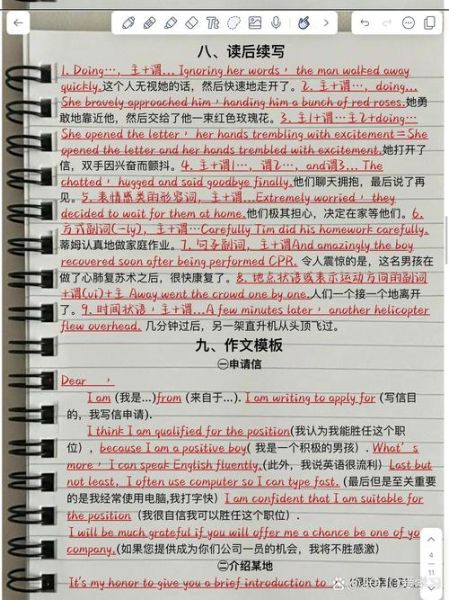 八、读后续写
1. Doing…, 主+谓… Ignoring her words, the man walked away
quickly.这个人无视她的话，然后快速地走开了。2. 主+谓…, doing…
She bravely approached him, handing him a bunch of red roses.她勇
敢地靠近他，然后交给了他一束红色玫瑰花。3. 主1+谓…主2+doing…
She opened the letter, her hands trembling with excitement = She
opened the letter and her hands trembled with excitement.她打开了
信，双手因兴奋而颤抖。4. 主+谓1…, 谓2…, and谓3… The
chatted, hugged and said goodbye finally.他们聊天拥抱，最后说了再
见。5. 表情感类的形容词, 主+谓…Extremely worried, they
decided to wait for them at home.他们极其担心，决定在家等他们。6.
方式副词(-ly), 主+谓…Carefully Tim did his homework carefully.
蒂姆认真地做家庭作业。7. 句子副词, 主+谓And amazingly the boy
recovered soon after being performed CPR. 令人震惊的是，这名男孩在
做了心肺复苏术之后，很快康复了。8. 地点状语或表示运动方向的副词
+谓(vi)+主 Away went the crowd one by one.人们一个接一个地离开
了。9. 时间状语, 主+谓…A few minutes later, another helicopter
flew overhead. 几分钟过后，另一架直升机从头顶飞过。
九、作文模板
㊀申请信
Dear ,
I am (我是...)from (来自于...). I am writing to apply for (写信目
的，我写信申请).
I think I am qualified for the position(我认为我能胜任这个职
位）, because I am a positive boy( 我是一个积极的男孩）. What's
more, I can speak English fluently.(此外，我说英语很流利）Last but
not least, I often use computer so I can type fast. (最后但是至关重要
的是我经常使用电脑,我打字快）I am confident that I am suitable for
the position（我很自信我可以胜任这个职位）.
I will be much grateful if you will offer me a chance be one of yo
company.(如果您提供成为你们公司一员的机会，我将不胜感激）
㊁介绍某地
It's my honor to give you a brief introduction to
4
11